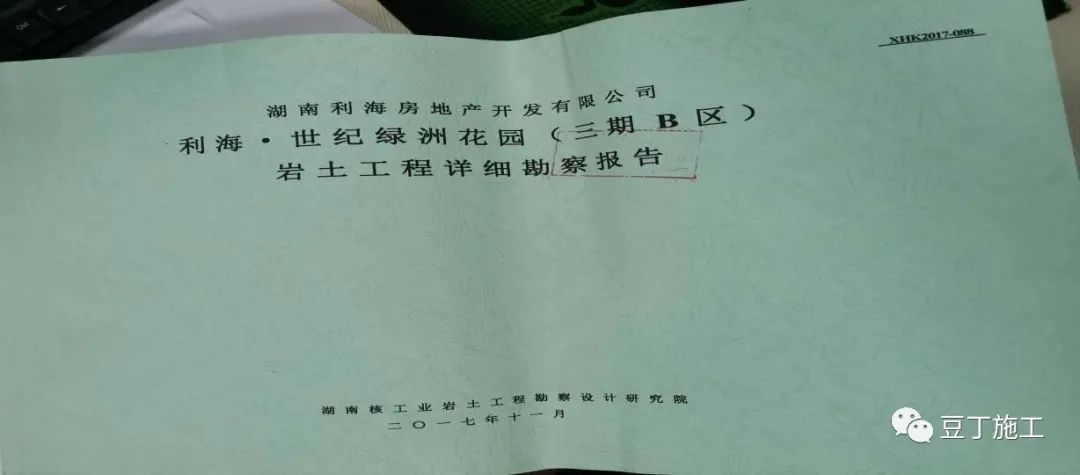 XHK2017-088
湖南利海房地产开发有限公司
利海·世纪绿洲花园（三期B区）
岩土工程详细勘察报告
湖南核工业岩土工程勘察设计研究院
二〇一七年十一月
豆丁施工